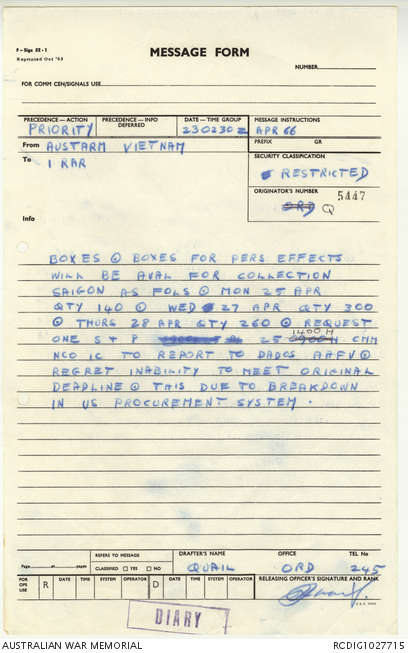 F-Sigs 52-1
Reprinted Oct '65
MESSAGE FORM
NUMBER
FOR COMM CEN/SIGNALS USE
PRECEDENCE—ACTION
PRECEDENCE—INFO
DEFERRED
DATE—TIME GROUP
MESSAGE INSTRUCTIONS
PRIORITY
230230Z
APR 66
From AUSTARM VIETNAM
PREFIX GR
To 1 RAR
SECURITY CLASSIFICATION
RESTRICTED
ORIGINATOR'S NUMBER
5447
ORD Q
Info
BOXES @ BOXES FOR PERS EFFECTS
WILL BE AVAL FOR COLLECTION
SAIGON AS FOLS @ MON 25 APR
QTY 140 @ WED 27 APR QTY 300
@ THURS 28 APR QTY 260 @ REQUEST
1400 H
ONE S & P 25 0900H CMM
NCO IC TO REPORT TO DADOS AAFV @
REGRET INABILITY TO MEET ORIGINAL
DEADLINE @ THIS DUE TO BREAKDOWN
IN US PROCUREMENT SYSTEM .
REFER TO MESSAGE
DRAFTER'S NAME
OFFICE
TEL No
Page of pages
CLASSIFIED YES NO
QUAIL
ORD
245
FOR
OPS
USE
R DATE TIME SYSTEM OPERATOR D DATE TIME SYSTEM OPERATOR
RELEASING OFFICER'S SIGNATURE AND RANK
DIARY
AUSTRALIAN WAR MEMORIAL
RCDIG1027715